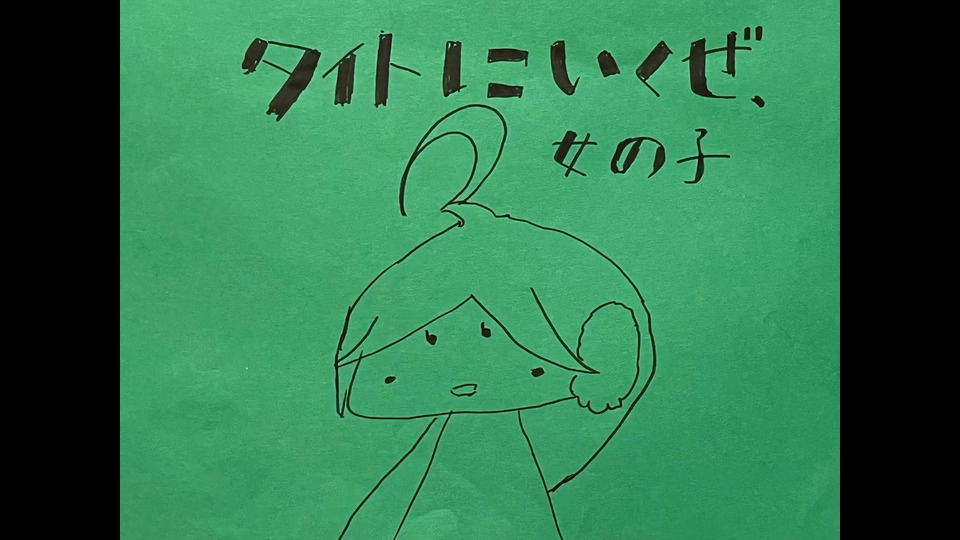 タイトにいくぜ、
女の子